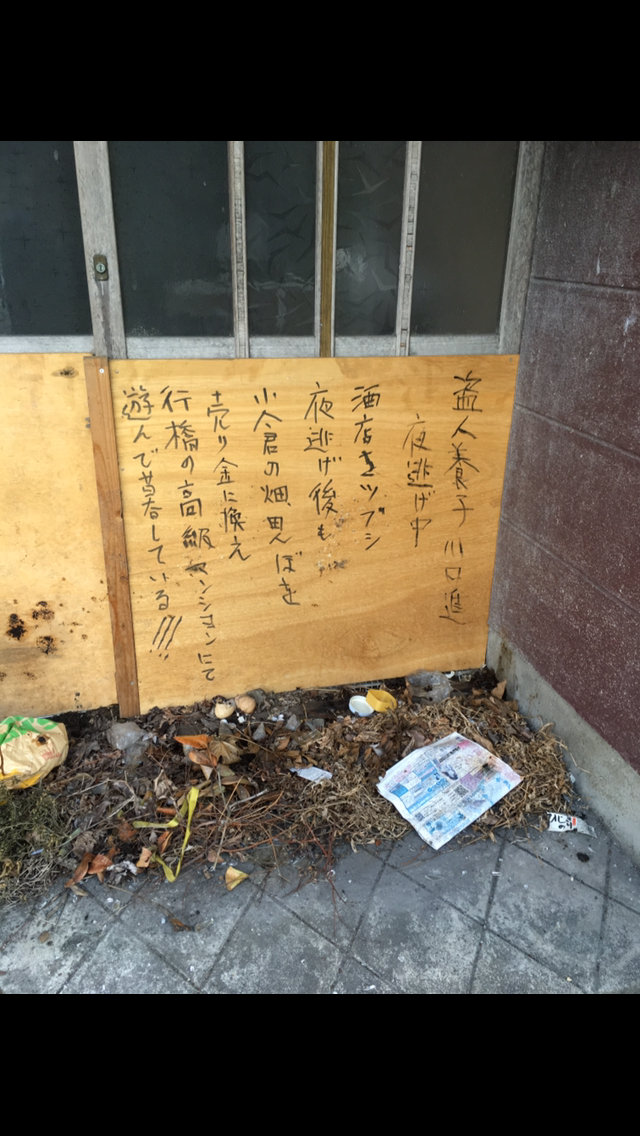 盗人養子川口進
夜逃げ中
酒店をツブシ
夜逃げ後も
小今君の畑田んぼを
売り金に換え
行橋の高級マンションにて
遊んで暮している!!!